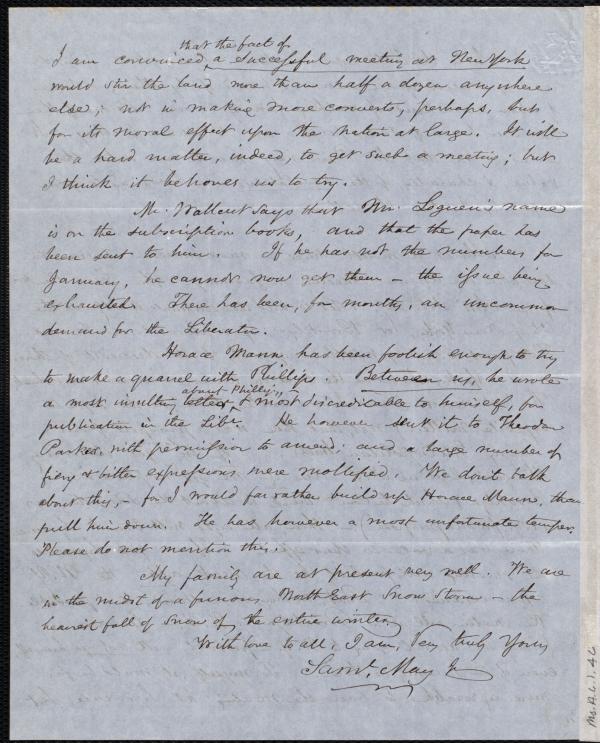 that the fact of
I am convinced a successful meeting at New York
would stir the land more than half a dozen anywhere
else; not in making more converts, perhaps, but
for its moral effect upon the nation at large. It will
be a hard matter, indeed, to get such a meeting; but
I think it behoves us to try.
Mr. Wallcut says that Mr. Loguen's name
is on the subscription books, and that the paper has
been sent to him. If he has not the numbers for
January, he cannot now get them – the issue being
exhausted. There has been, for months, an uncommon
demand for the Liberator.
Horace Mann has been foolish enough to try
to make a quarrel with Phillips. Between us, he wrote
about Phillips,
a most insulting letter & most discreditable to himself, for
publication in the Libr. He however sent it to Theodore
Parker, with permission to amend; and a large number of
fiery & bitter expressions were mollified. We don't talk
about this, – for I would far rather build up Horace Mann, than
pull him down. He has however a most unfortunate temper.
Please do not mention this.
My family are at present very well. We are
in the midst of a furious North East Snow Storm – the
heaviest fall of snow of the entire winter.
With love to all, I am, Very truly Yours
Saml. May Jr
Ms.B.1.6